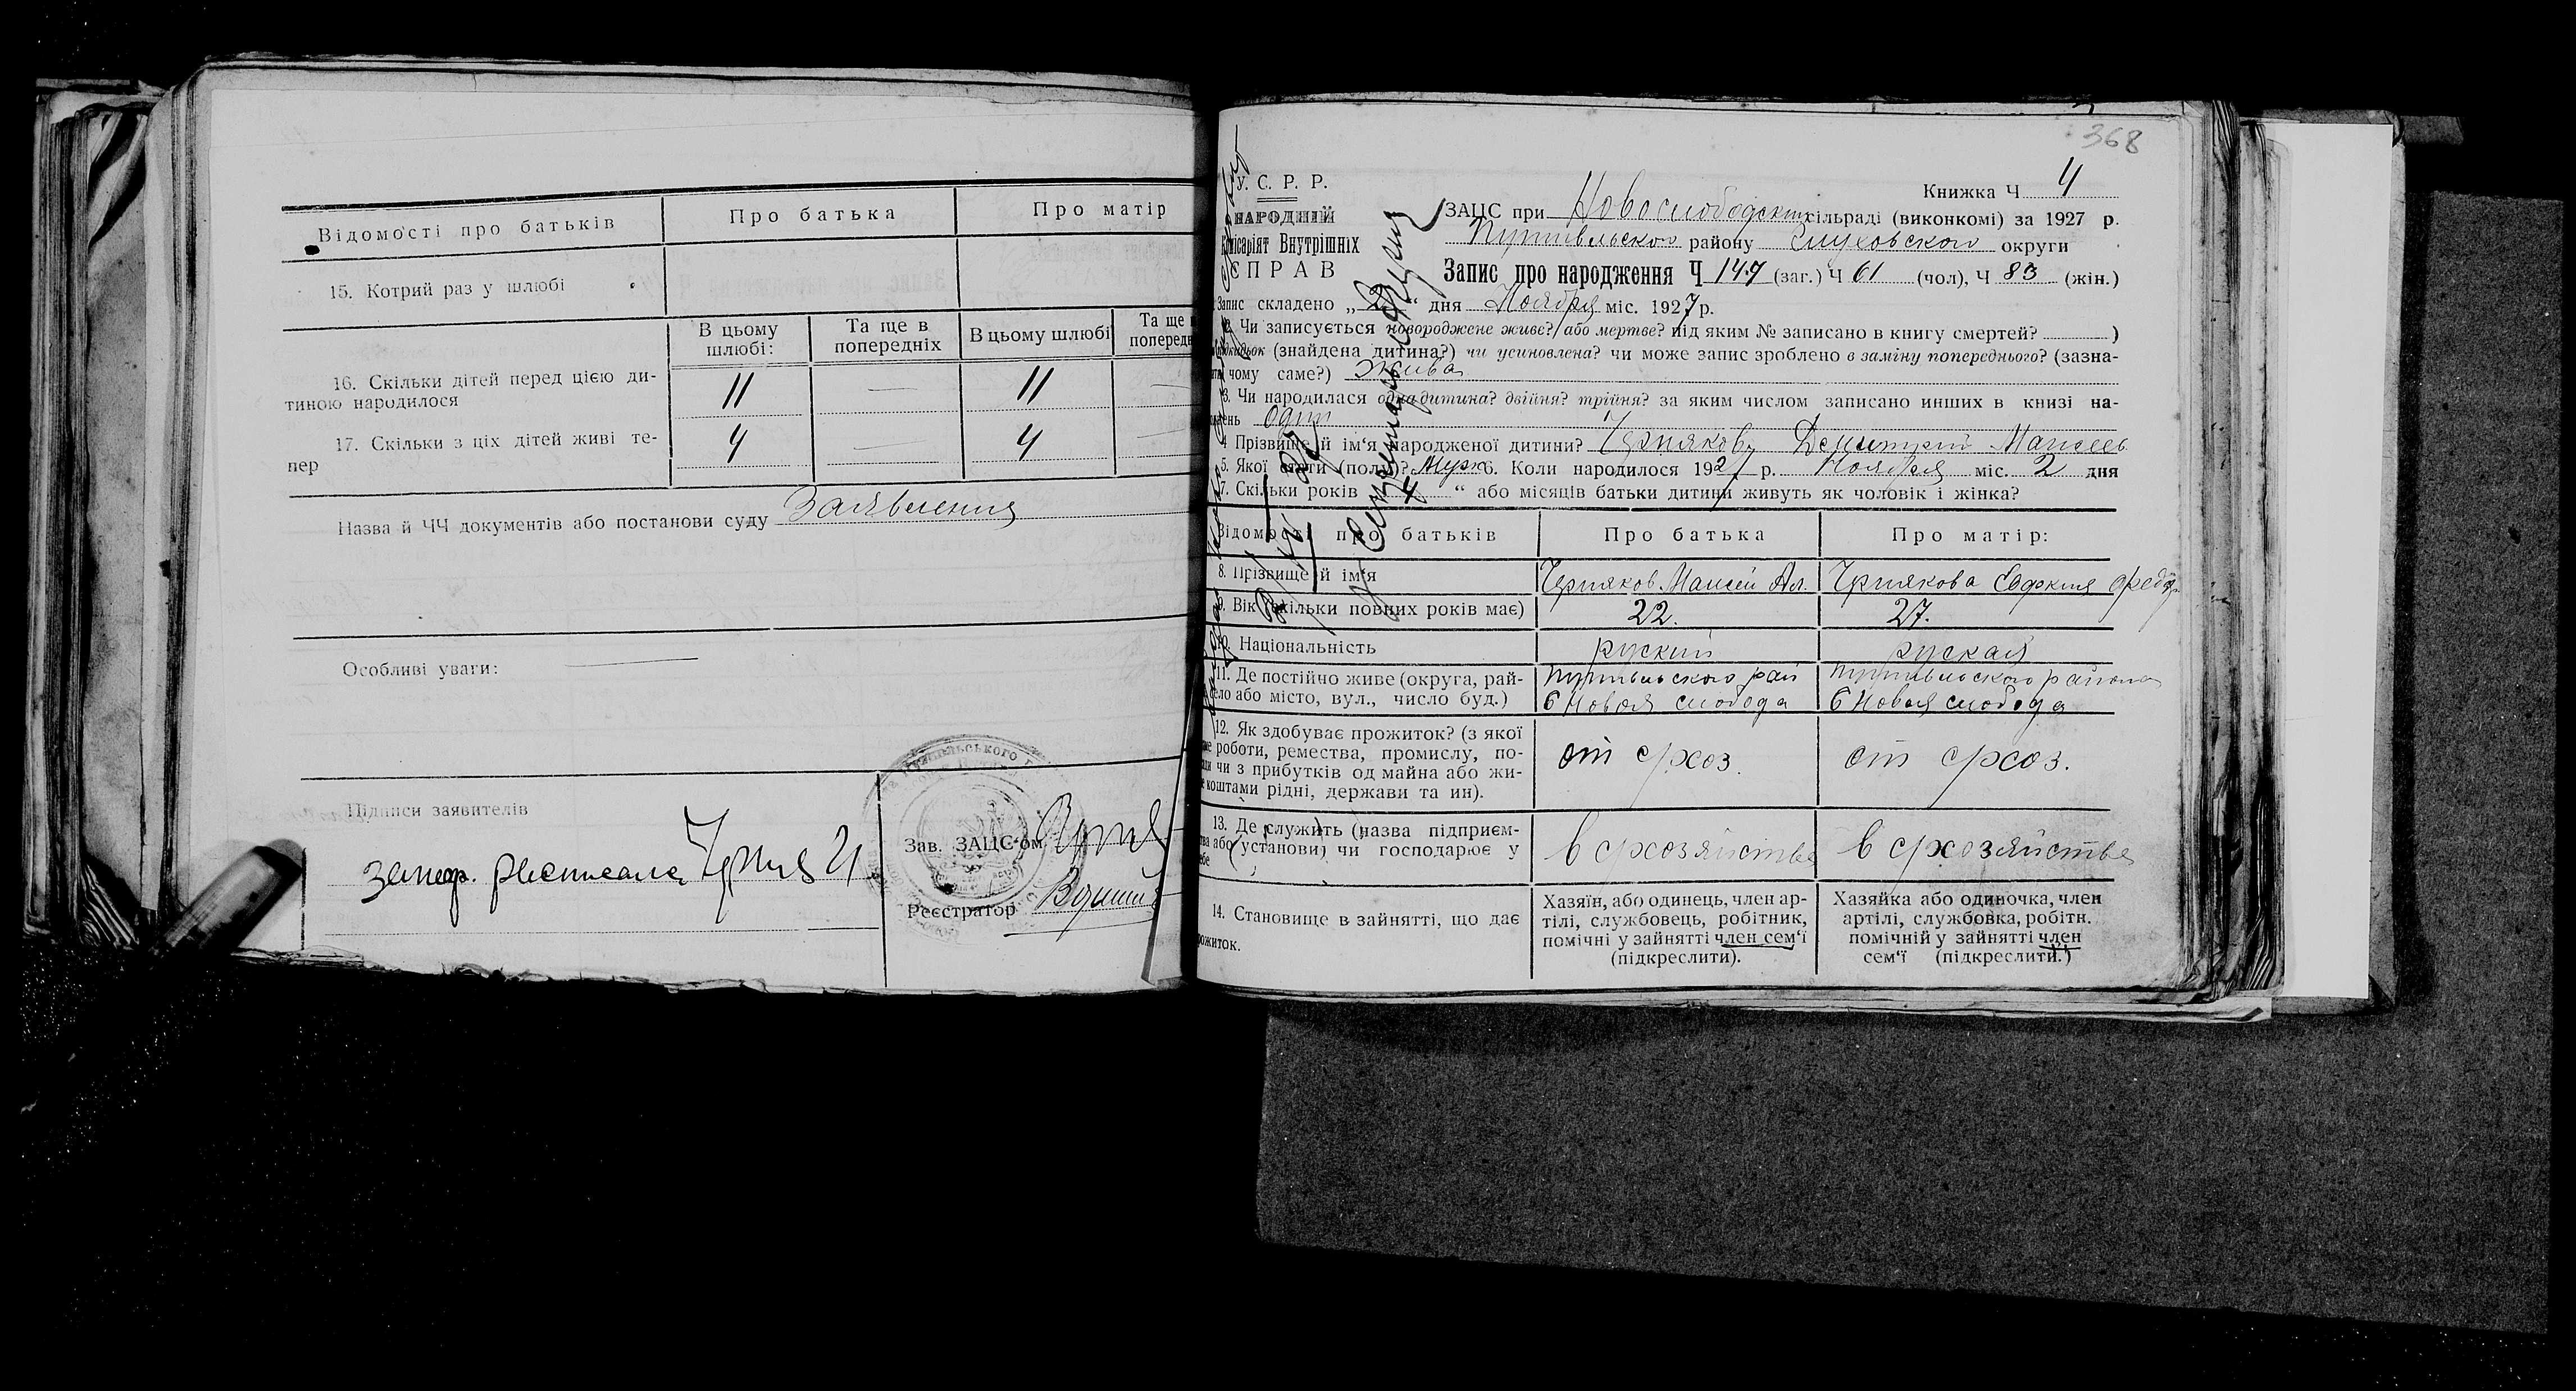 Відомости про батьків
Про батька
Про матір
15. Котрий раз у шлюбі
В цьому шлюбі:
Та ще в попередніх
В цьому шлюбі
Та ще
попередн
16. Скільки дітей перед цією ди-
тиною народилося
11 — 11 —
17. Скільки з ціх дітей живі те-
пер
4 — 4 —
Назва й ЧЧ документів або постанови суду Заявления
Особливі уваги: —
Підписи заявителів
Зав. ЗАЦС‘ом
Реєстратор
368
У. С. Р. Р.
НАРОДНІЙ
Комісаріят Внутрішніх
СПРАВ
Книжка Ч 4
ЗАЦС при Новослободском сільраді (виконкомі) за 1927 р.
Путивльского району Глуховского округи
Запис про народження Ч 147 (заг.) Ч 61 (чол), Ч 83 (жін.)
Запис складено „2“ дня Ноября міс. 1927 р.
2. Чи записується новороджене живе? або мертве? під яким № записано в книгу смертей? )
(знайдена дитина?) чи усиновлена? чи може запис зроблено в заміну попереднього? (зазна-
чому саме?) Жива
3. Чи народилася одна дитина? двійня? трійня? за яким числом записано инших в книзі на-
один
4 Прізвище й ім‘я народженої дитини? Черняков Демитрий Моисеев
5. Якої стати (полу)? Муж 6. Коли народилося 1927 р. Ноября міс. 2 дня
7. Скільки років “ або місяців батьки дитини живуть як чоловік і жінка?
Відомості про батьків
Про батька
Про матір:
8. Прізвище й ім‘я
Черняков Маисей Ал.
Чрнякова Евфкия Федор
9. Вік (скільки повних років має)
22.
27.
10. Національність
руский
руская
11. Де постійно живе (округа, рай-
село або місто, вул., число буд.)
Путивльского рай
С Новоя слобода
Путивльского района
С Новая слобода
12. Як здобуває прожиток? (з якої
роботи, ремества, промислу, по-
чи з прибутків од майна або жи-
коштами рідні, держави та ин).
от срхоз.
от срхоз.
13. Де служить (назва підприєм-
або (установи) чи господарює у
в срхозяйстве
в срхозяйстве
14. Становище в зайнятті, що дає
прожиток.
Хазяїн, або одинець, член ар-
тілі, службовець, робітник,
помічні у зайнятті член сем‘ї
(підкреслити).
Хазяйка або одиночка, член
артілі, службовка, робітн.
помічній у зайнятті член
сем‘ї (підкреслити.)